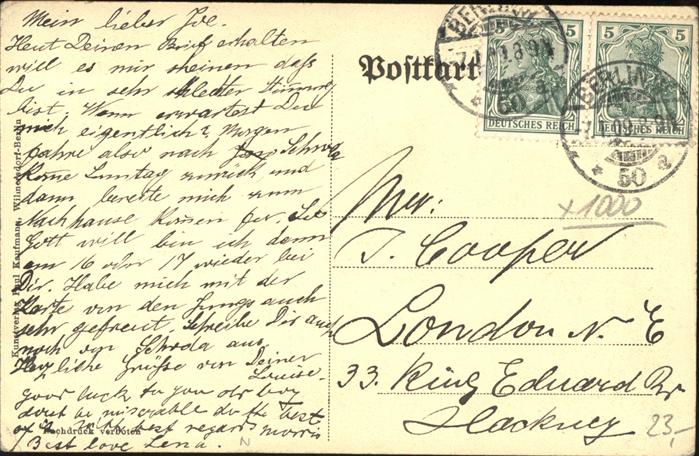 Mein lieber Joe.
Heut Deinen Brief erhalten
will es mir scheinen daß
Du in sehr schlechter Stimmung
bist. Wann erwartest Du
mich eigentlich? Morgen
fahre also nach Schroda
komme Sonntag zurück und
dann bereite mich zum
Nachhause kommen vor. So
Gott will bin ich dann
am 16 oder 17 wieder bei
Dir. Habe mich mit der
Karte von den Jungs auch
sehr gefreut. Schreibe Dir auch
noch von Schroda aus.
Herzliche Grüße von Deiner
Louise.
good luck to you old boy
dont be miserable do the best
of it. With best regards Morris
Best love Lena.
Nachdruck verboten
Kunstverlag Paul Kaufmann, Wilmersdorf-Berlin
Postkarte
5 5
DEUTSCHES REICH
5 5
DEUTSCHES REICH
BERLIN
50 a
BERLIN
09.8-9
50 a
x1000
Mr:
J. Cooper
London N. E
33. King Eduard Rd
Hackney
23,-
N